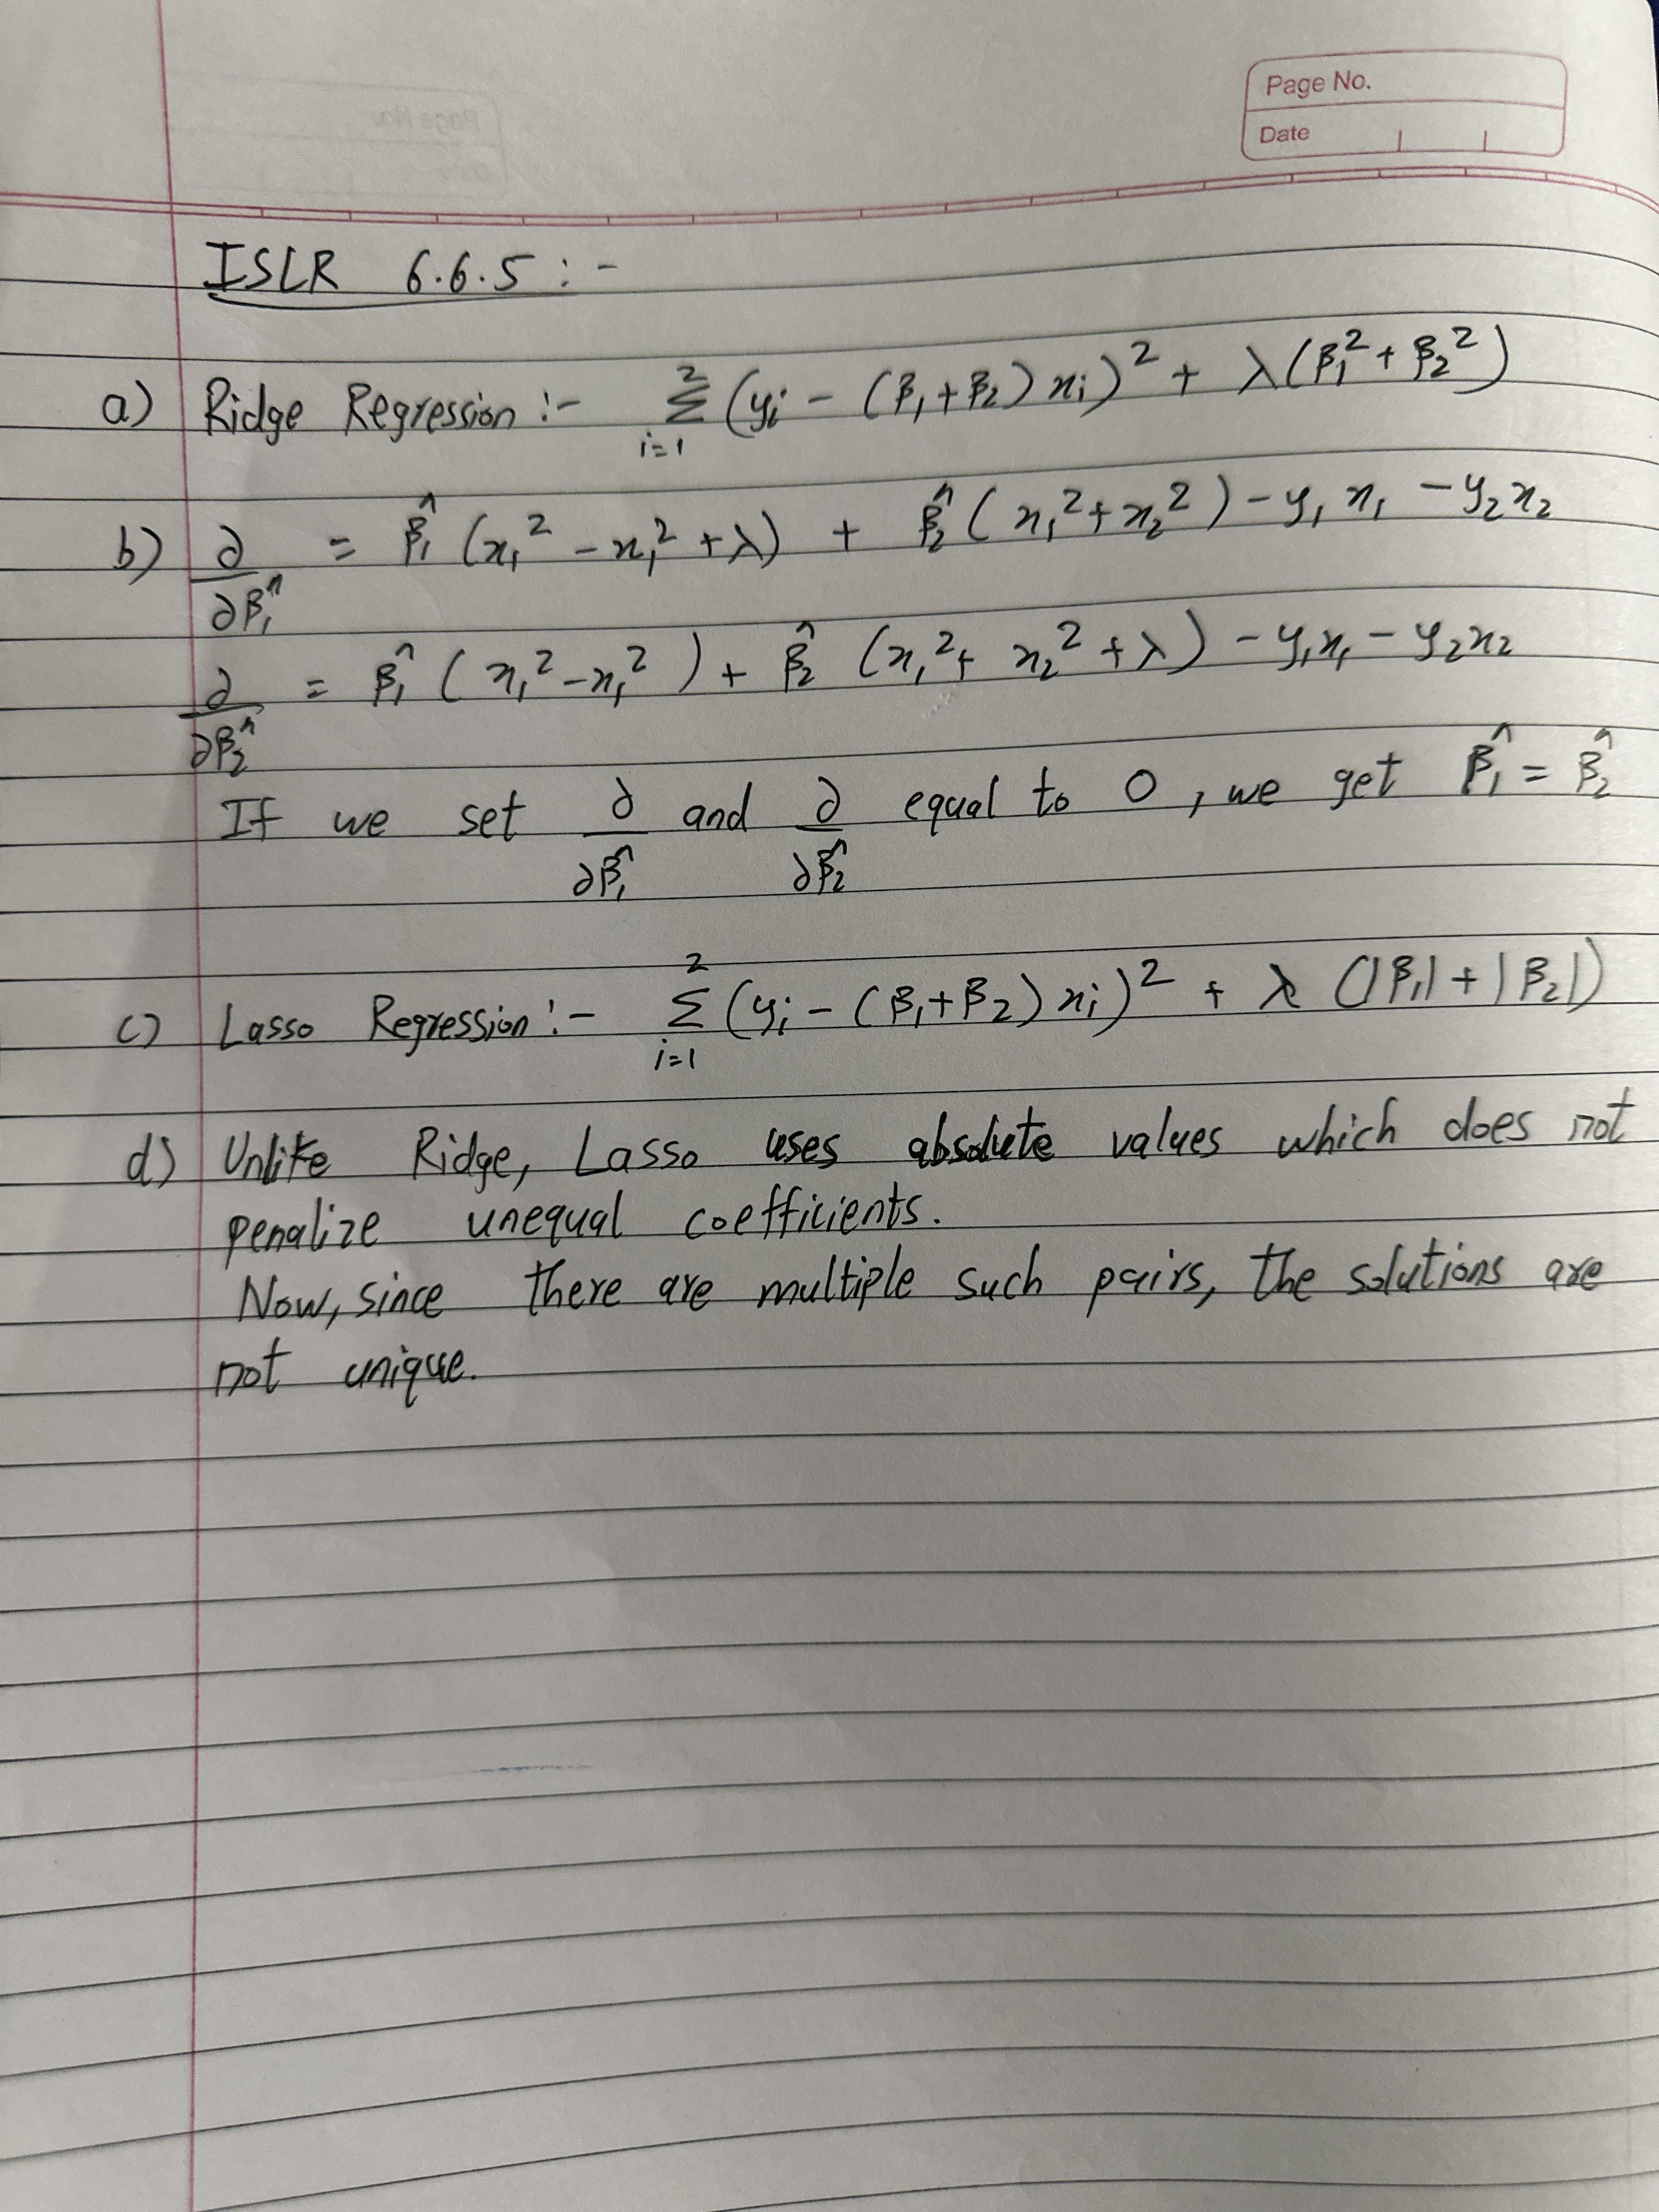 Page No.
Date
ISLR 6.6.5 :-
a) Ridge Regression :- \sum_{i=1}^{2} (y_i - (β_1 + β_2) x_i)^2 + λ(β_1^2 + β_2^2)
b) ∂/∂\hat{β_1} = \hat{β_1} (x_1^2 - x_1^2 + λ) + \hat{β_2} (x_1^2 + x_2^2) - y_1 x_1 - y_2 x_2
∂/∂\hat{β_2} = \hat{β_1} (x_1^2 - x_1^2) + \hat{β_2} (x_1^2 + x_2^2 + λ) - y_1 x_1 - y_2 x_2
If we set ∂/∂\hat{β_1} and ∂/∂\hat{β_2} equal to 0, we get \hat{β_1} = \hat{β_2}
c) Lasso Regression :- \sum_{i=1}^{2} (y_i - (β_1 + β_2) x_i)^2 + λ (|β_1| + |β_2|)
d) Unlike Ridge, Lasso uses absolute values which does not
penalize unequal coefficients.
Now, since there are multiple such pairs, the solutions are
not unique.